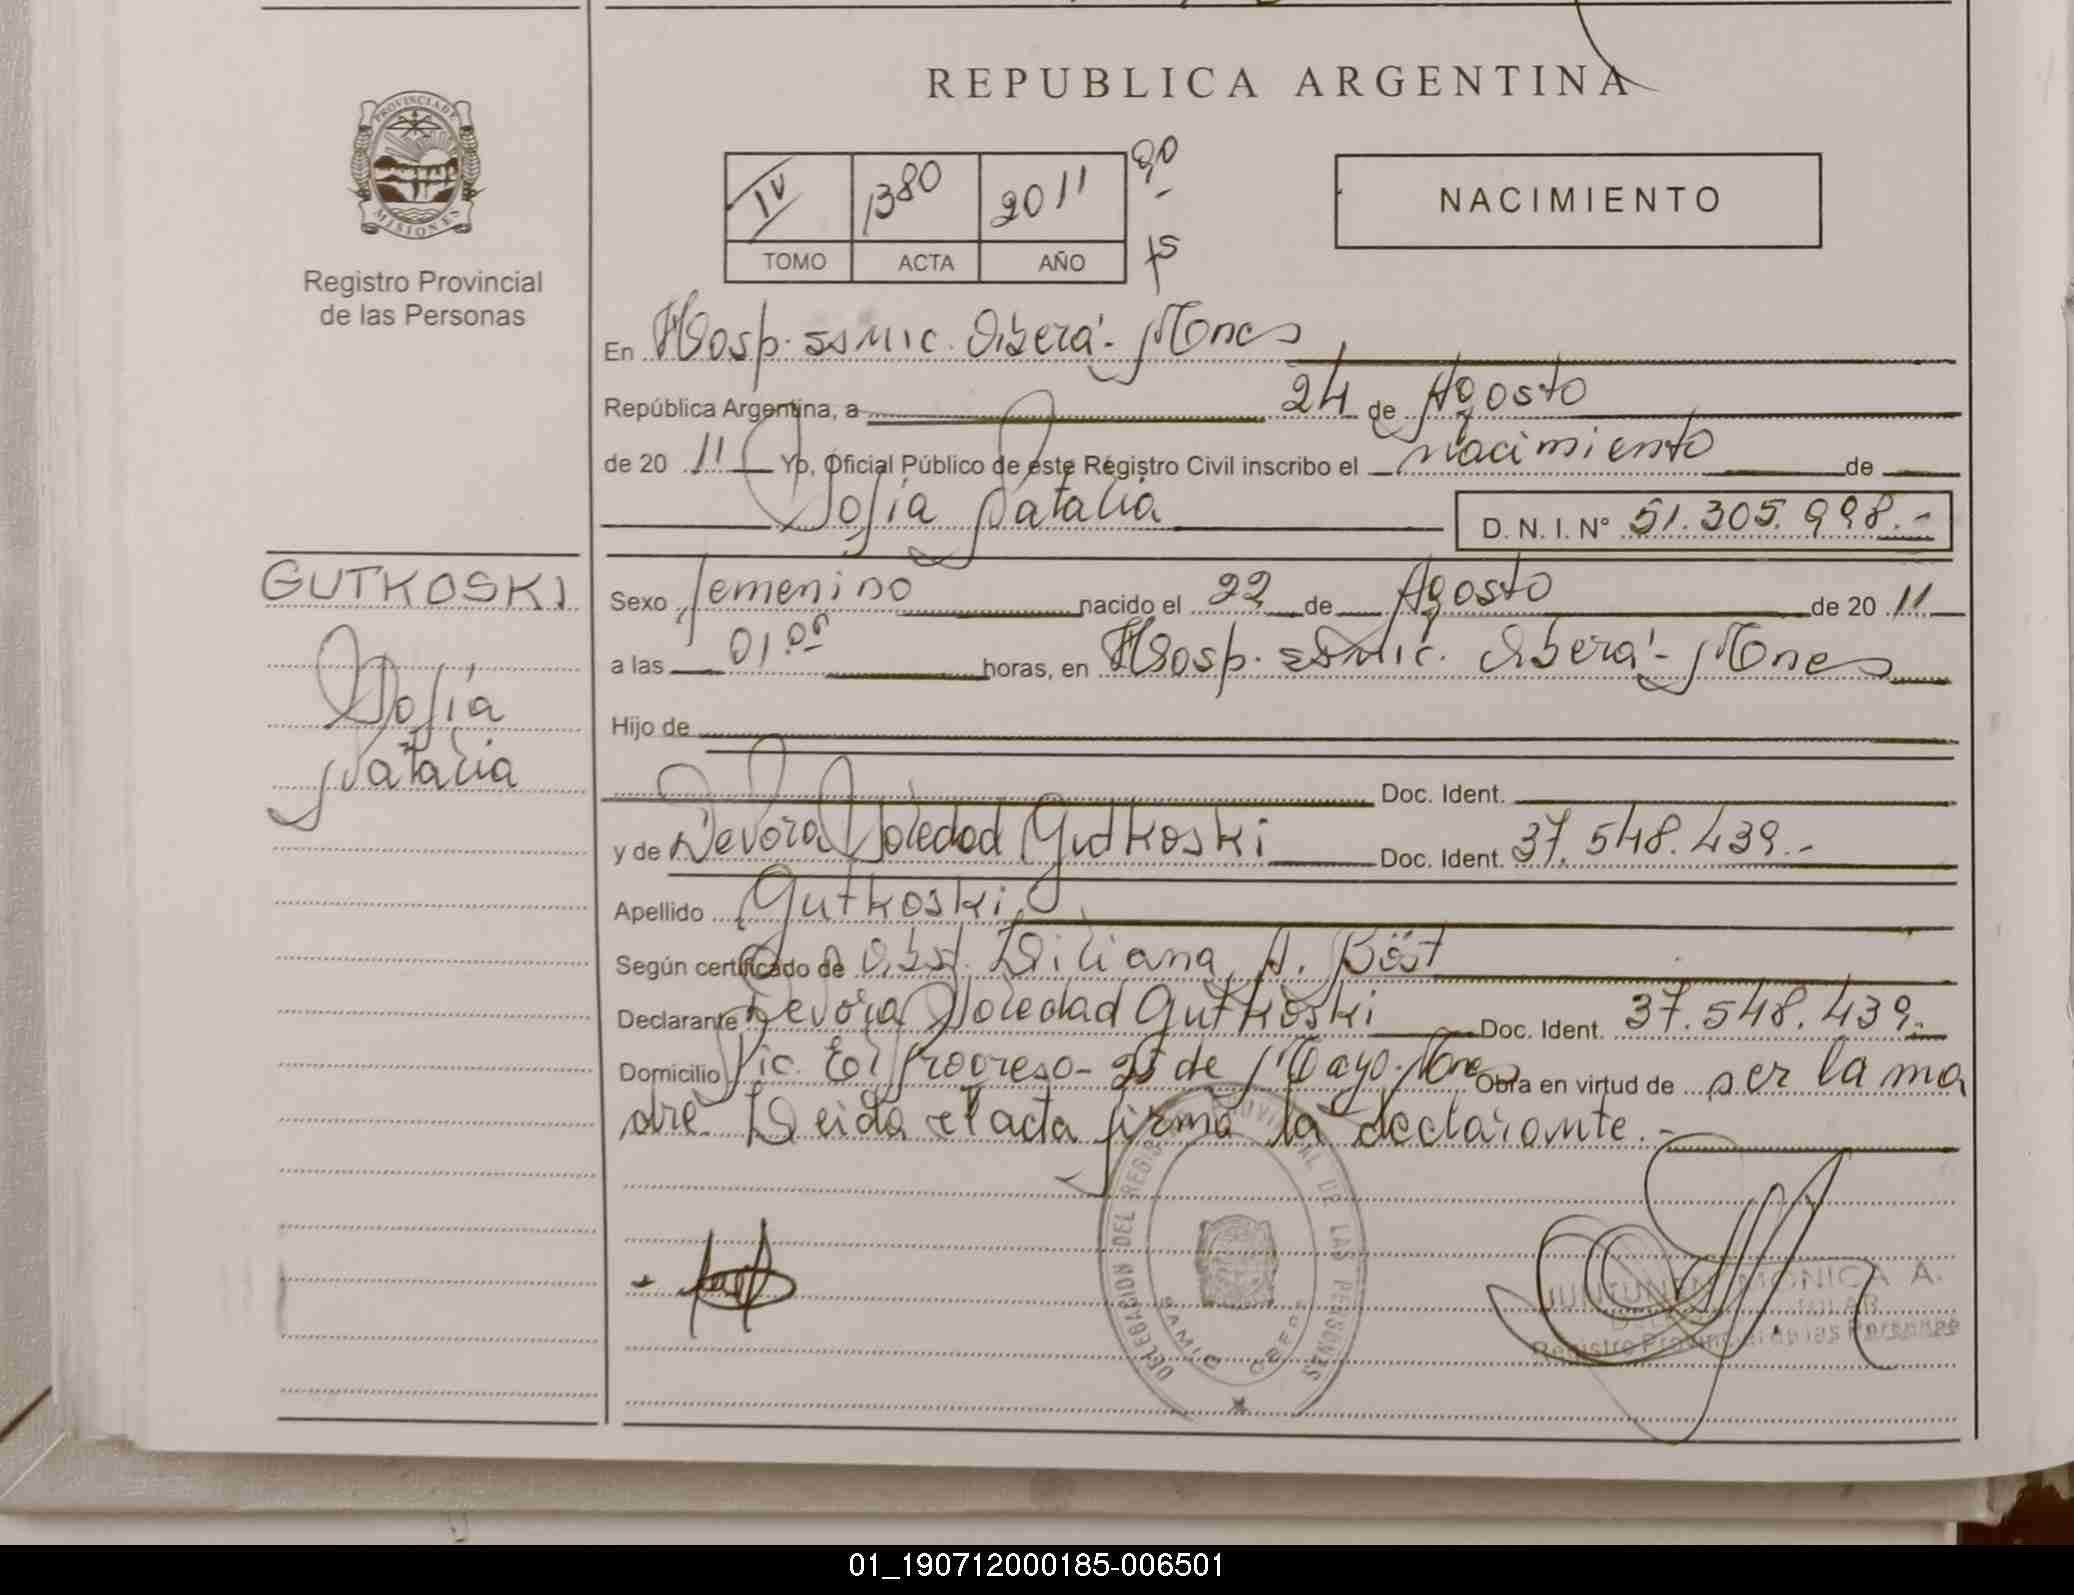 REPUBLICA ARGENTINA
PROVINCIA DE
MISIONES
Registro Provincial
de las Personas
IV 1380 2011
TOMO ACTA AÑO
NACIMIENTO
En Hosp. SSMIC. Oberá - Mnes
República Argentina, a 24 de Agosto
de 20 11 Yo, Oficial Público de este Registro Civil inscribo el nacimiento de
Sofía Natalia D. N. I. N° 51.305.998.-
GUTKOSKI
Sofía
Natalia
Sexo femenino nacido el 22 de Agosto de 20 11
a las 01.00 horas, en Hosp. SSMIC. Oberá - Mnes
Hijo de
Doc. Ident.
y de Devora Soledad Gutkoski Doc. Ident. 37.548.439.-
Apellido Gutkoski
Según certificado de Obst. Liliana A. Böst
Declarante Devora Soledad Gutkoski Doc. Ident. 37.548.439.-
Domicilio Pic. El Progreso - 25 de Mayo. Mnes Obra en virtud de ser la ma
dre. Leida el acta firma la declarante.-
DELEGACION DEL REGISTRO PROVINCIAL DE LAS PERSONAS
MONICA A.
Registro Provincial de las Personas
01_190712000185-006501